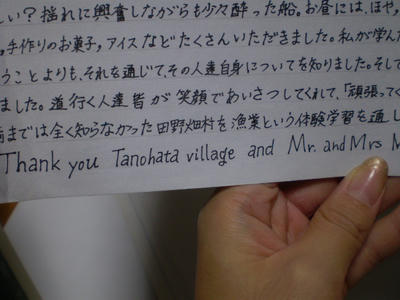 しい?揺れに興奮しながらも少々酔った船。お昼には、ほや,
,手作りのお菓子,アイスなどたくさんいただきました。私が学んだ
うことよりも、それを通じて、その人達自身についてを知りました。そして
ました。道行く人達皆が笑顔であいさつしてくれて、「頑張って
までは全く知らなかった田野畑村を漁業という体験学習を通し
Thank you Tanohata village and Mr. and Mrs M